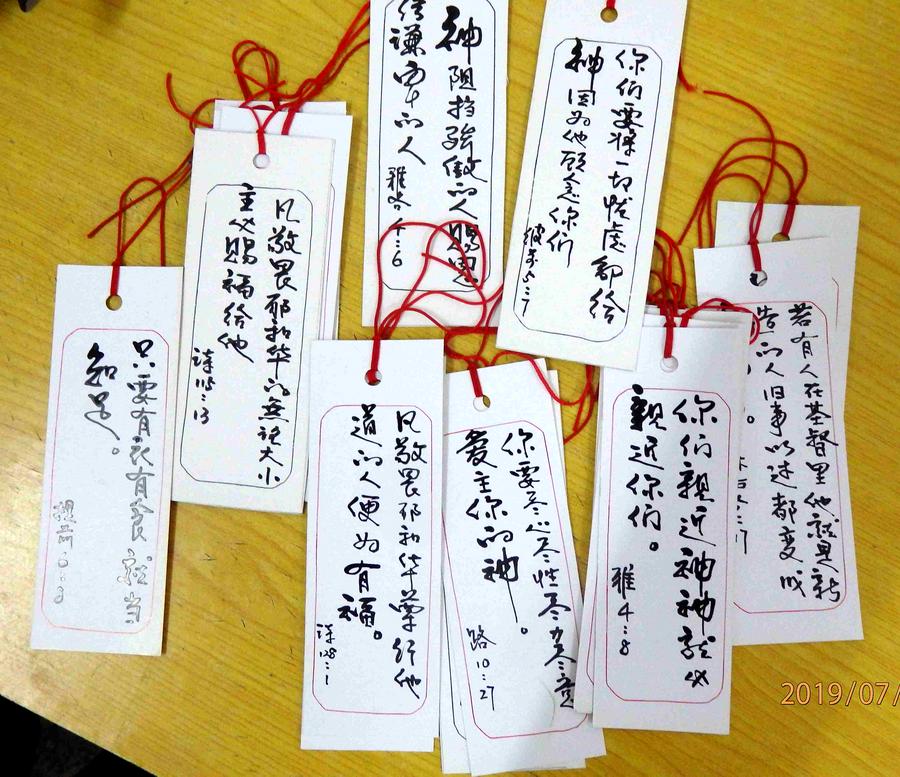 只要有衣有食就当
知足。
提前6:8
凡敬畏耶和华的無论大小
主必赐福给他
诗115:13
神阻挡骄傲的人赐恩
给谦卑的人
雅各4:6
你们要将一切忧虑卸给
神因为他顾念你们
彼前5:7
凡敬畏耶和华遵行他
道的人便为有福。
诗128:1
你要尽心尽性尽力尽意
爱主你的神。
路10:27
你们親近神神就必
親近你们。
雅4:8
若有人在基督里他就是新
造的人旧事以过都变成
2019/07/